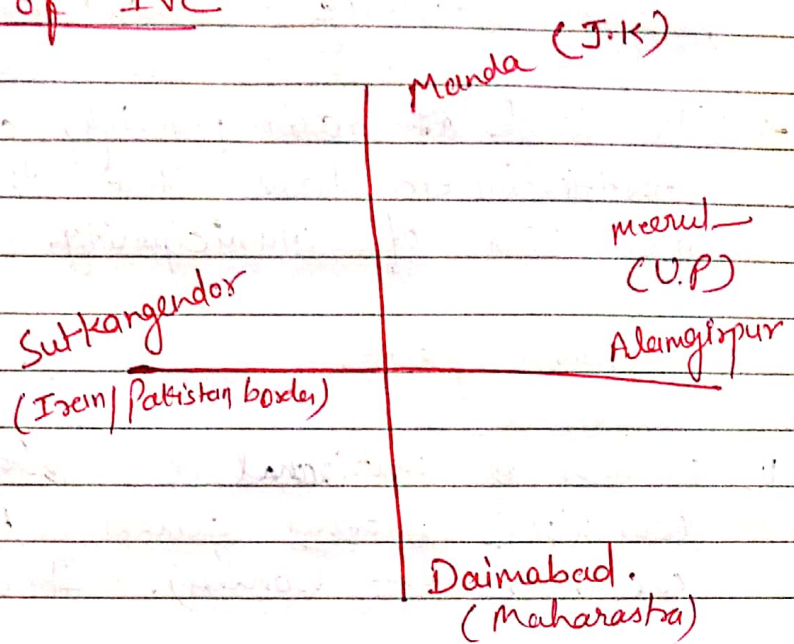 of IVC
Manda (J.K)
Meerut
(U.P)
Sutkangendor
Alamgirpur
(Iran/Pakistan border)
Daimabad.
(Maharastra)